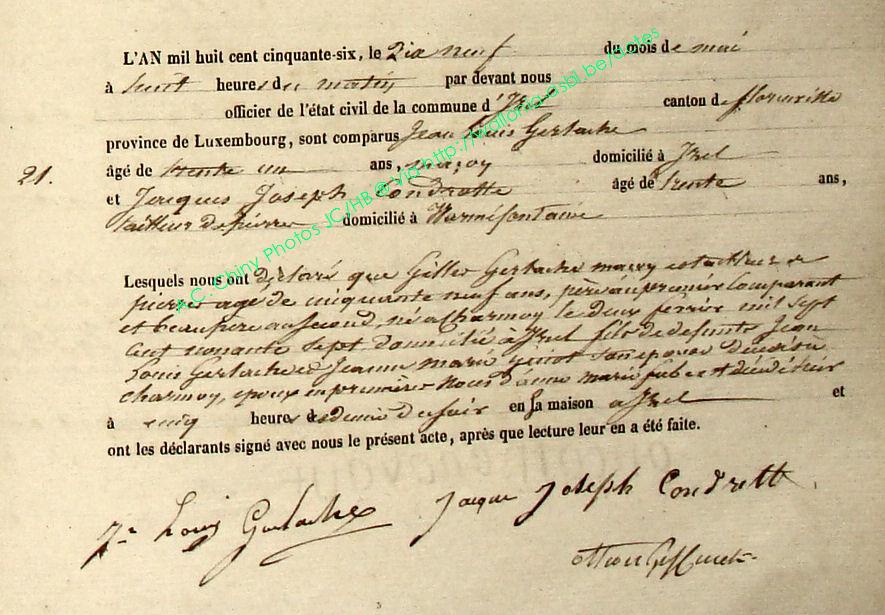 L'AN mil huit cent cinquante-six, le Dix neuf du mois de mai
à huit heures du matin par devant nous
officier de l'état civil de la commune d'Izel canton de florenville
province de Luxembourg, sont comparus Jean Louis Gerlache
21.
âgé de trente un ans, maçon domicilié à Izel
et Jacques Joseph Condrotte âgé de trente ans,
tailleur de pierre domicilié à Warmifontaine
A.C. Chiny Photos JC/HB @ Via http://wallonia-asbl.be/dates
Lesquels nous ont déclaré que Gilles Gerlache maçon et tailleur de
pierres agé de cinquante neuf ans, père au premier Comparant
et beau père au second, né a Charmoy le deux fevrier mil sept
cent nonante sept domicilié à Izel fils de defunts Jean
Louis Gerlache et Jeanne marie son epouse Décédé à
charmoy, epoux en premières Nous d'anne marie est décédé hier
à cinq heures et demie du soir en sa maison a Izel et
ont les déclarants signé avec nous le présent acte, après que lecture leur en a été faite.
Jn Louis Gerlache Jacque Joseph Condrotte